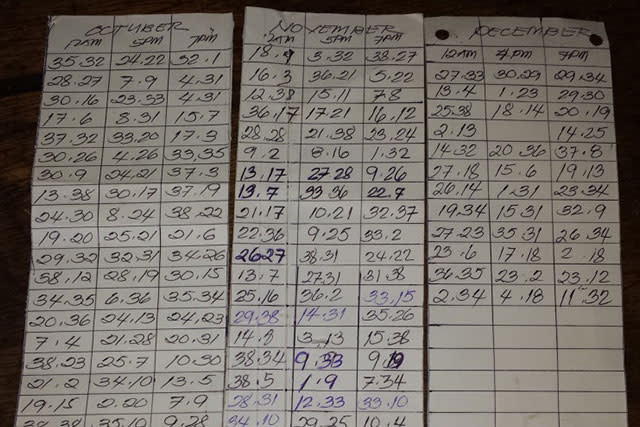 OCTUBER
12AM 5PM 7PM
35.32 24.22 32.1
28.27 7.9 4.31
30.16 23.33 4.31
17.6 8.31 15.7
37.32 33.20 17.3
30.26 4.26 33,35
30.9 24,21 37.3
13.38 30.17 37.19
24.30 8.24 38.22
19.20 25.21 21.6
29,32 32,31 34.26
38,12 28,19 30.15
34,35 6.36 35.34
20,36 24,13 24,23
7.4 21.28 20.31
38,23 25.7 10.30
21.2 34,10 13.5
19.15 2.20 7.9
35,10 9.28
NOVEMBER
12AM 5PM 7PM
18.9 3.32 38.27
16.3 36.21 5.22
12.38 15.11 7.8
36.17 17.21 16.12
28.28 21.38 23,24
9.2 8.16 1.32
13,17 27.28 9.26
13.7 33 36 22.7
21.17 10.21 32.37
22.36 9.25 33.2
26.27 38,31 24.22
13.7 27.31 31.38
25,16 36.2 33,15
29.38 14.31 35.26
14.8 3.13 15.38
38.34 9.33 9.19
38.5 1.9 7.34
28,31 12.33 33.10
34.10 29.25 10.4
DECEMBER
12AM 4PM 7PM
27.33 30.29 29.34
13.4 1.23 29.30
25.38 18.14 20.19
2.13 14.25
14.32 20.36 37.8
27.18 15.6 19.13
26.14 1.31 23.34
19.34 15.31 32.9
27.23 35.31 26.34
23.6 17.18 2.18
36.35 23.2 23,12
2.34 4.18 11.32